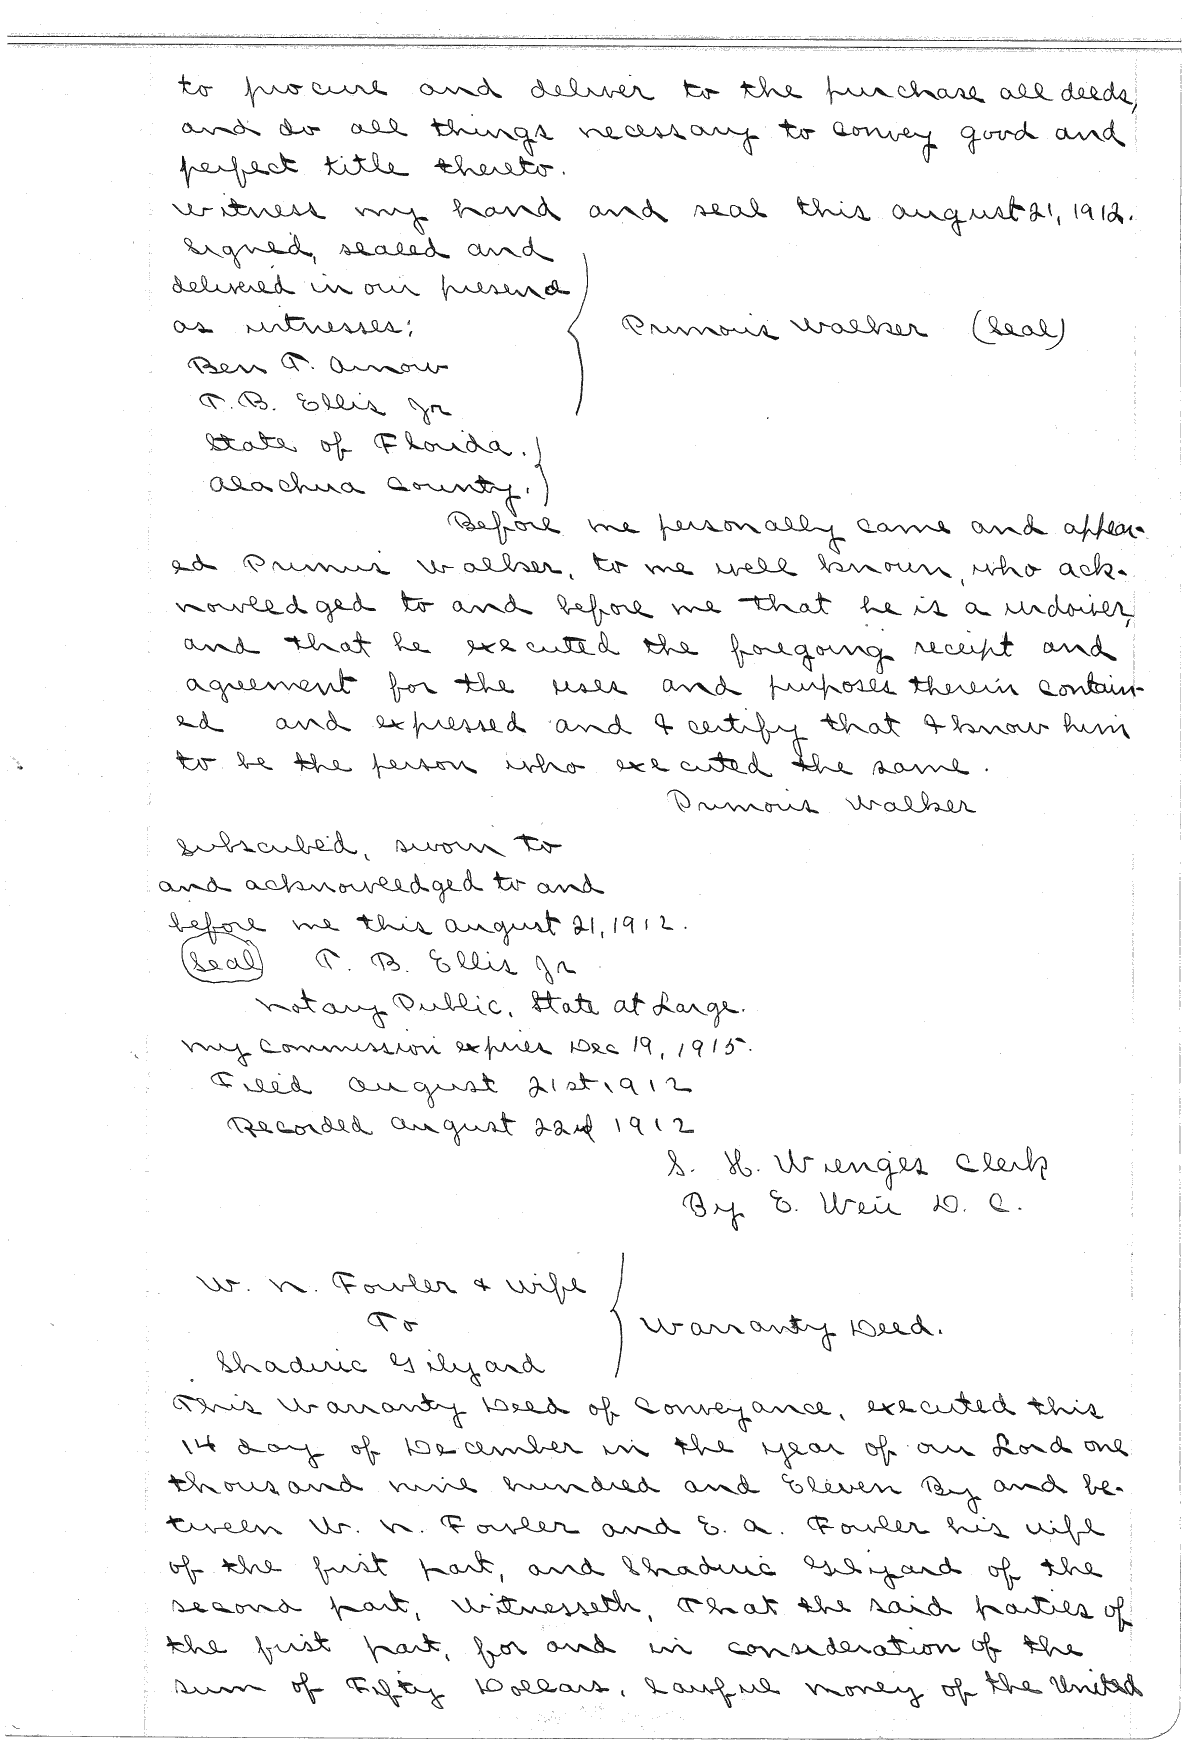 to procure and deliver to the purchase all deeds,
and do all things necessary to convey good and
perfect title thereto.
Witness my hand and seal this august 21, 1912.
Signed, sealed and
delivered in our presend
as witnesses:
Primous Walker (Seal)
Ben T. Arnow
T. B. Ellis Jr
State of Florida.
Alachua County.
Before me personally came and appear-
ed Primus Walker, to me well known, who ack-
nowledged to and before me that he is a widower,
and that he executed the foregoing receipt and
agreement for the uses and purposes therein contain-
ed and expressed and I certify that I know him
to be the person who executed the same.
Primous Walker
Subscribed, sworn to
and acknowledged to and
before me this august 21, 1912.
(Seal) T. B. Ellis Jr
Notary Public, State at Large.
My commission expires Dec 19, 1915.
Filed august 21st, 1912
Recorded august 22nd 1912
S. H. Wienges Clerk
By E. Weir D. C.
W. N. Fowler & wife
To
Warranty Deed.
Shadric Gilyard
This Warranty Deed of Conveyance, executed this
14 day of December in the year of our Lord one
thousand nine hundred and Eleven By and be-
tween W. N. Fowler and E. A. Fowler his wife
of the first part, and Shadric Gilyard of the
second part, Witnesseth, That the said parties of
the first part, for and in consideration of the
sum of Fifty Dollars, lawful money of the United